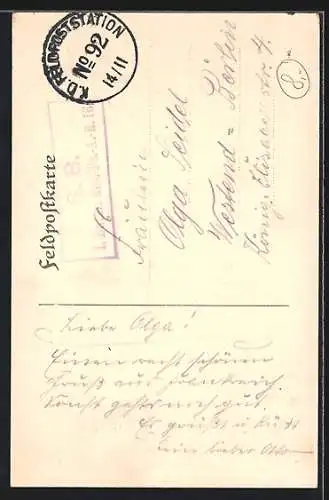 K.D. FELDPOSTSTATION
No 92
14/11
8,-
Feldpostkarte
S. B.
Fräulein
Olga Seidel
Westend-Berlin
Königin Elisabethstr. 4.
Liebe Olga!
Einen recht schönen
Gruß aus Frankreich.
Sonst gehts mir gut.
Es grüßt u. küßt
Dein lieber Otto